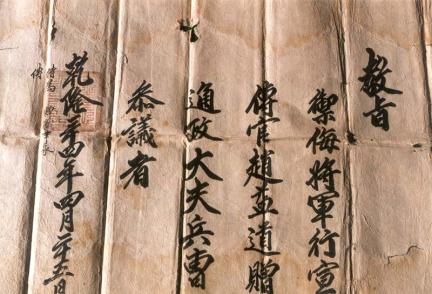 敎旨
禦侮將軍行宣
傳官趙道贈
通政大夫兵曹
叅議者
乾隆二十四年四月二十五日